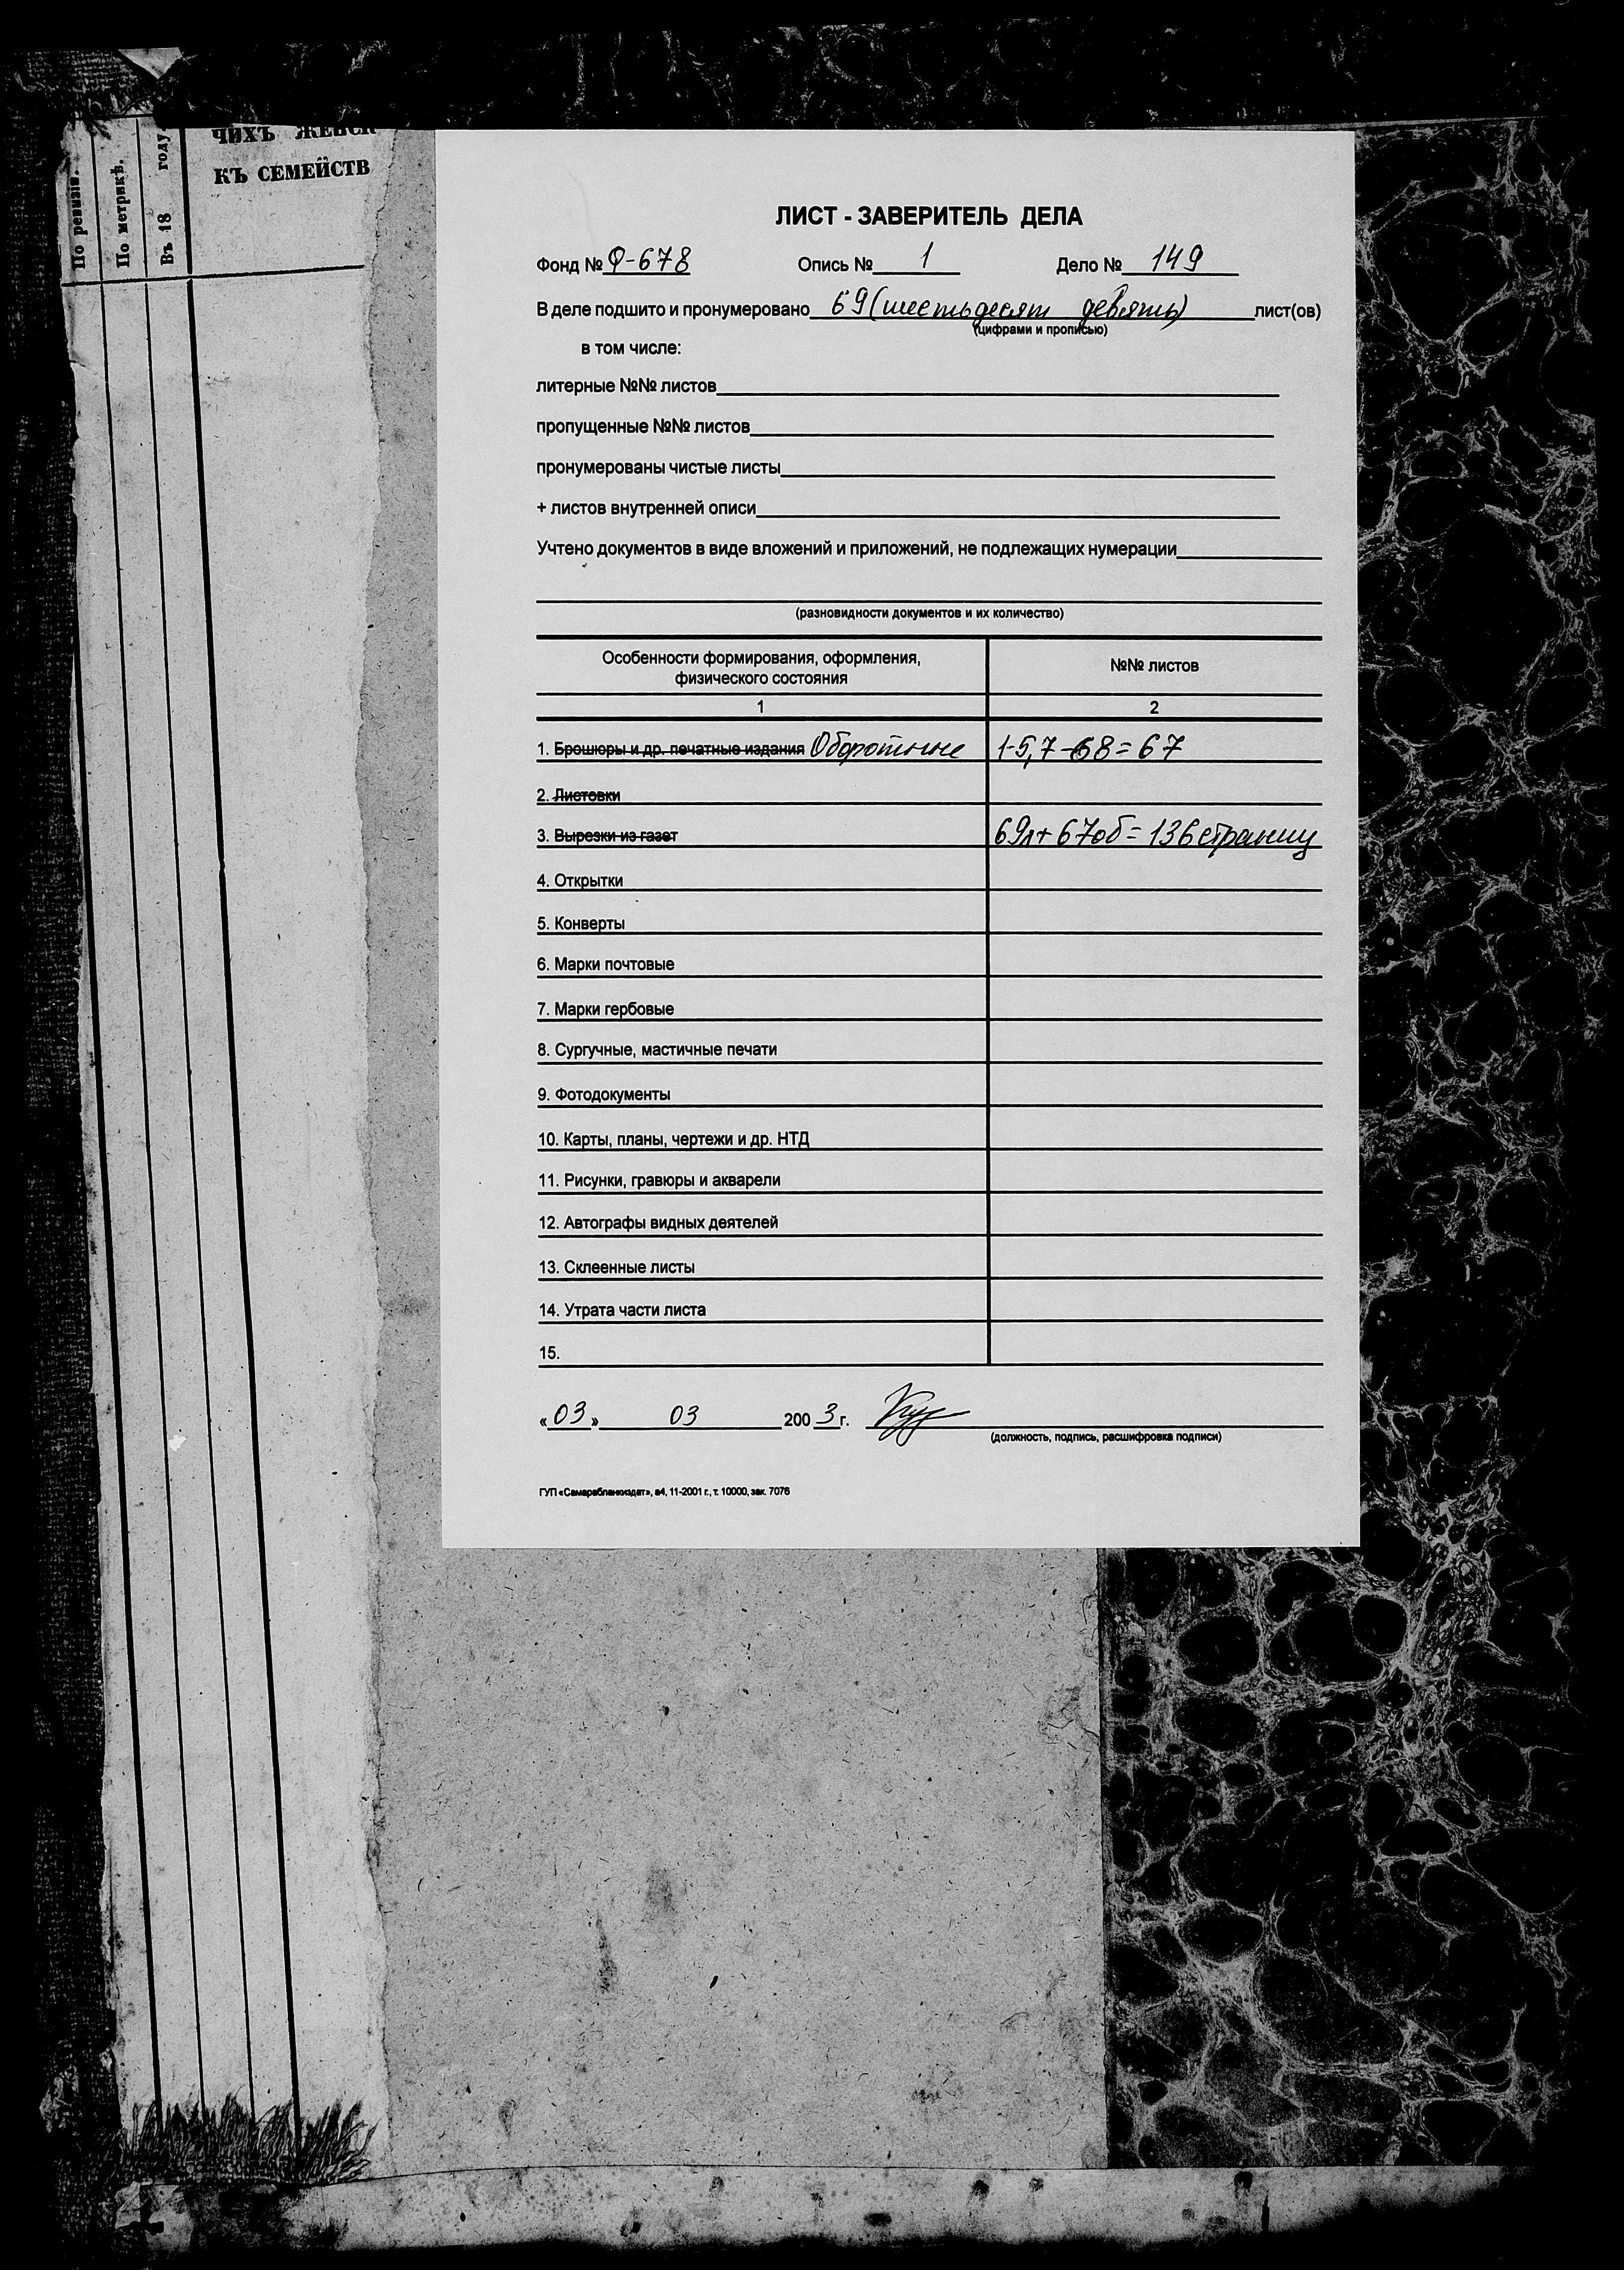 По ревизіи.
По метрикѣ.
Въ 18 году
ЧИХЪ ЖЕНСК
КЪ СЕМЕЙСТВ
ЛИСТ - ЗАВЕРИТЕЛЬ ДЕЛА
Фонд № Ф-678 Опись № 1 Дело № 149
В деле подшито и пронумеровано 69 (шестьдесят девять) лист(ов)
(цифрами и прописью)
в том числе:
литерные №№ листов
пропущенные №№ листов
пронумерованы чистые листы
+ листов внутренней описи
Учтено документов в виде вложений и приложений, не подлежащих нумерации
(разновидности документов и их количество)
Особенности формирования, оформления, №№ листов
физического состояния
1 2
1. Брошюры и др. печатные издания Оборотные 1-5, 7-68 = 67
2. Листовки
3. Вырезки из газет 69л + 67об = 136 страниц
4. Открытки
5. Конверты
6. Марки почтовые
7. Марки гербовые
8. Сургучные, мастичные печати
9. Фотодокументы
10. Карты, планы, чертежи и др. НТД
11. Рисунки, гравюры и акварели
12. Автографы видных деятелей
13. Склеенные листы
14. Утрата части листа
15.
«03» 03 2003 г.
(должность, подпись, расшифровка подписи)
ГУП «Самарабланкиздат», а4, 11-2001 г., т. 10000, зак. 7076